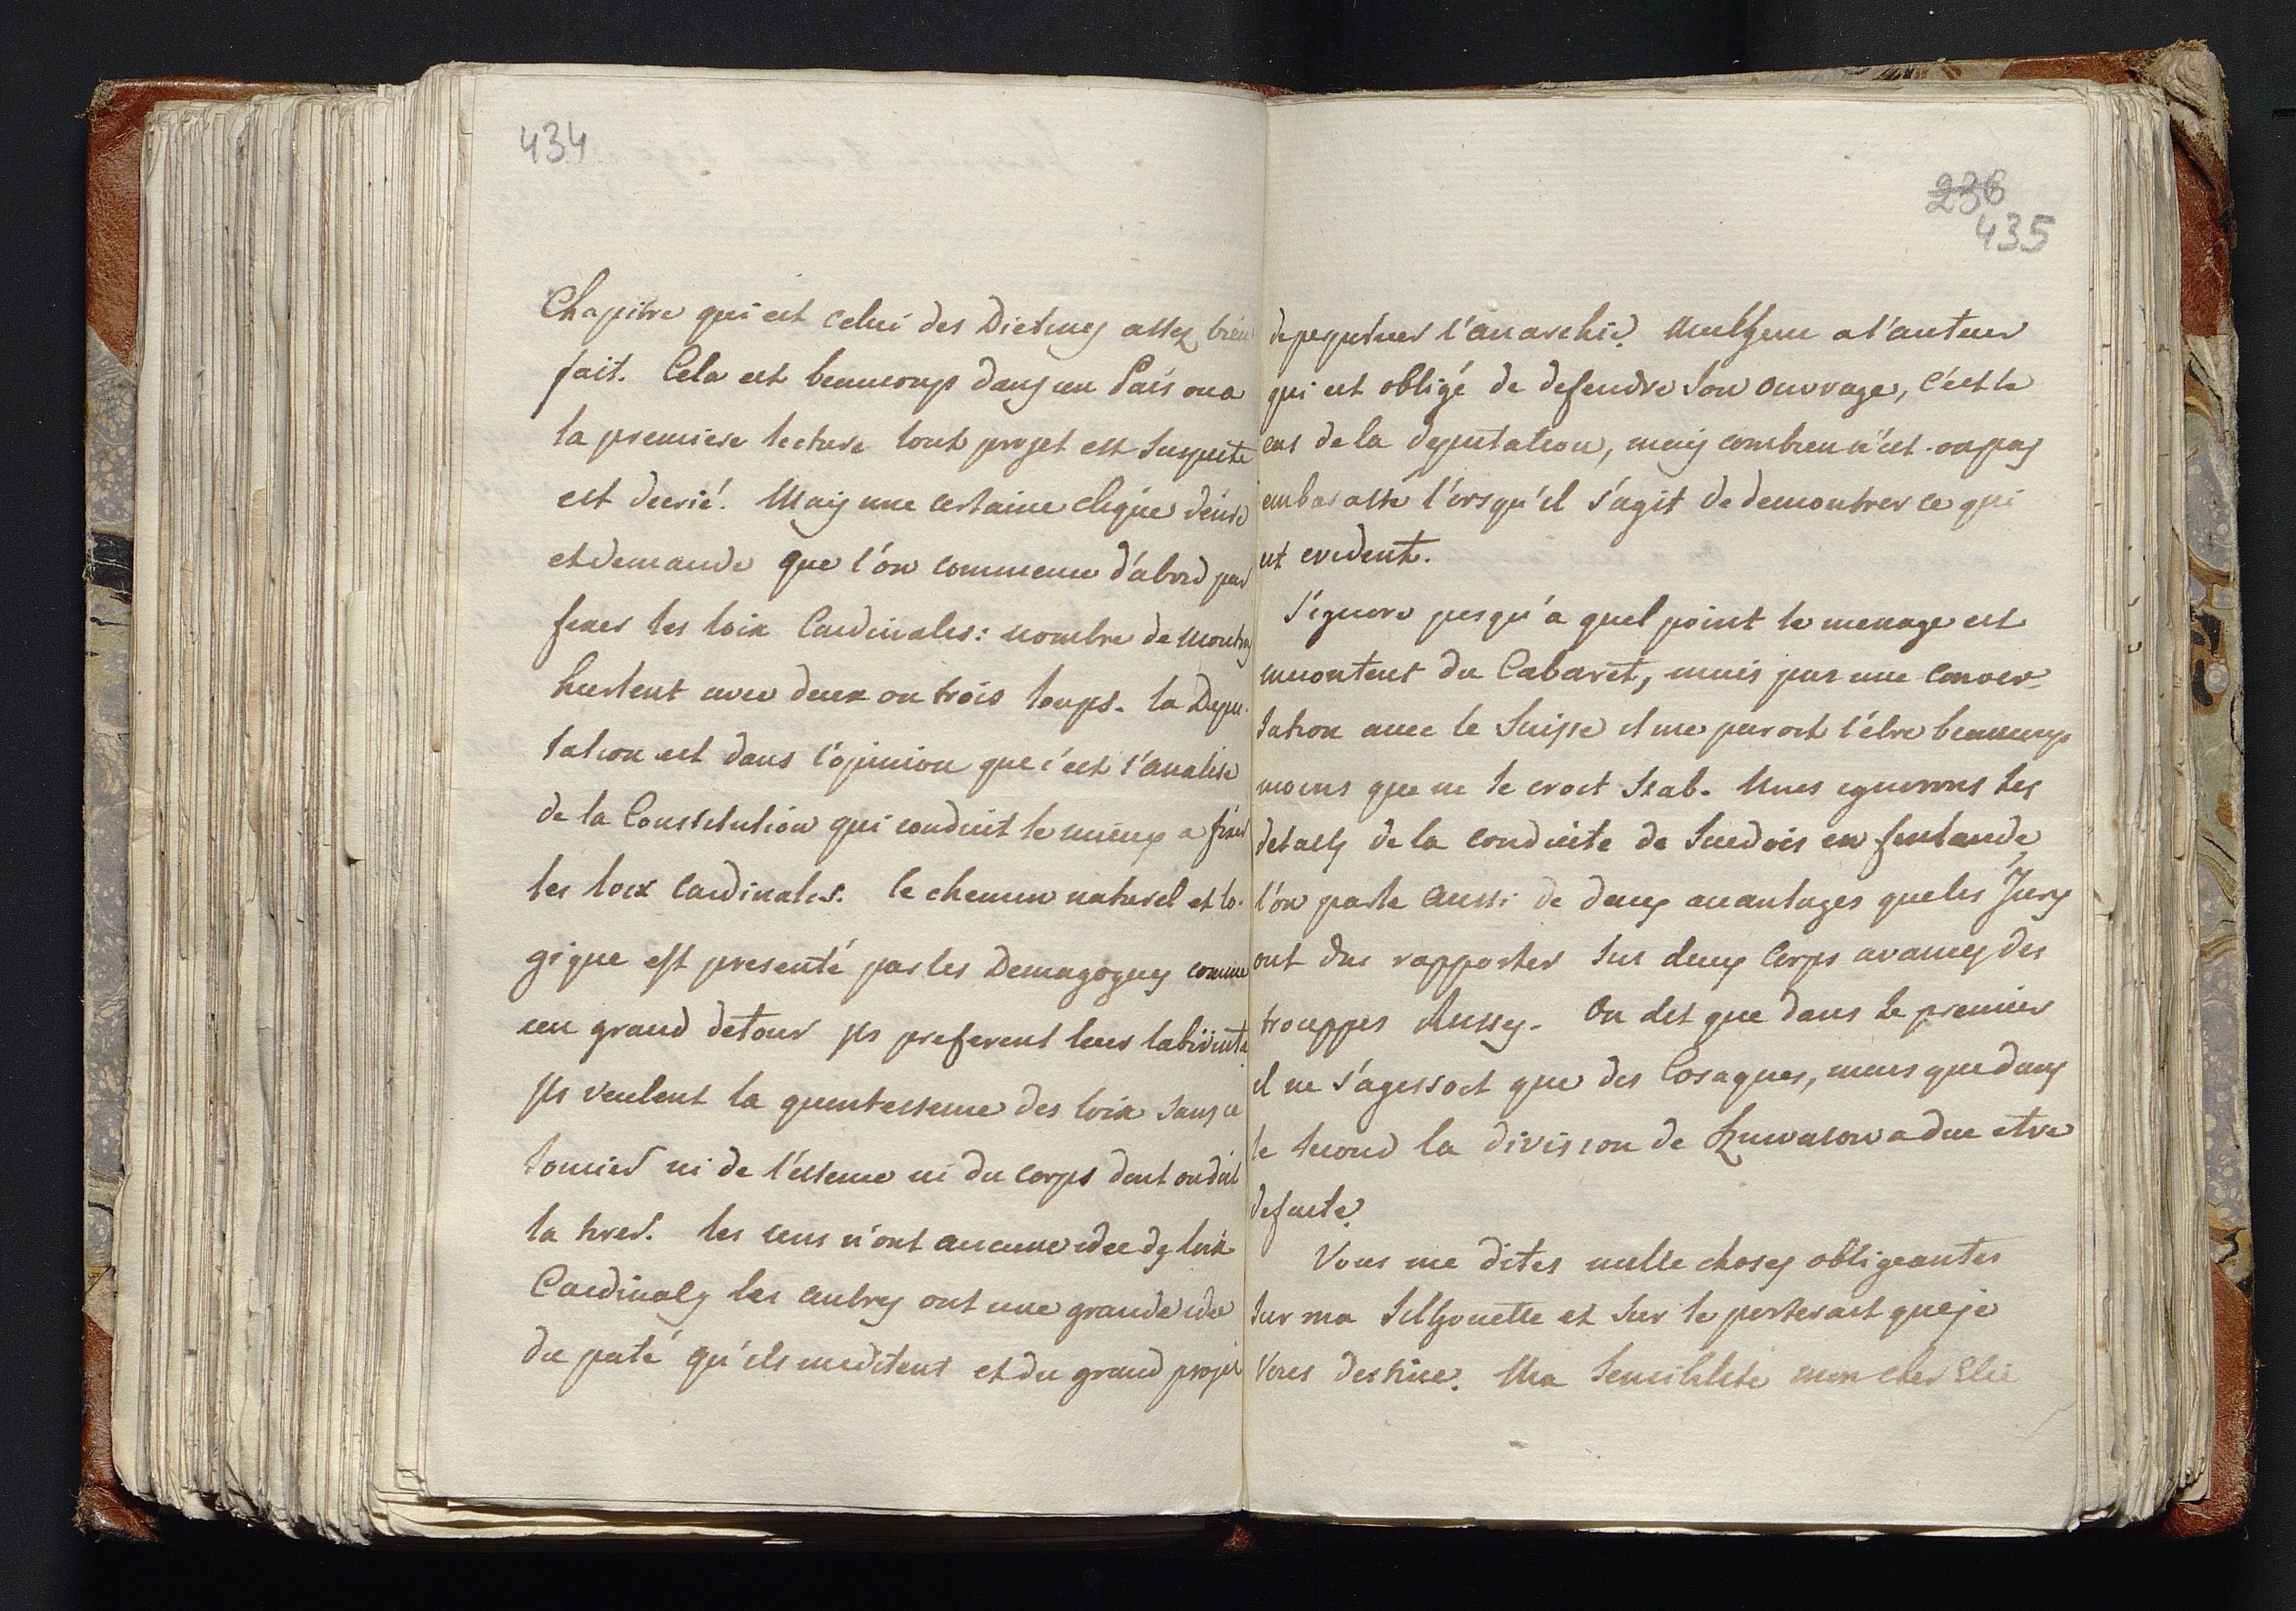 434
Chapitre qui est celui des Dietines assez bien
fait. Cela est beaucoup dans un Païs ou a
la premiere lecture tout projet est suspecte
est decrié. Mais une certaine clique
et demande que l'on commence d'abord par
fixer les loix Cardinales: nombre de moutons
hurlent avec deux ou trois loups. la Depu-
tation est dans l'opinion que c'est l'analise
de la Constitution qui conduit le mieux a fixer
les loix cardinales. le chemin naturel et lo-
gique est presenté par les Demagogues comme
un grand detour ils preferent leur labirinte
ils veulent la quintessence des loix sans se
soucier ni de l'essence ni du corps dont on doit
la tirer. les uns n'ont aucune idée des loix
Cardinales les autres ont une grande idée
du paté qu'ils meditent et du grand projet
238
435
de perpetuer l'anarchie. Malheur a l'auteur
qui est obligé de defendre son ouvrage, c'est le
cas de la deputation, mais combien n'est-on pas
embarassé l'orsqu'il s'agit de demontrer ce qui
est evident.
J'ignore jusqu'a quel point le menage est
mecontent du Cabaret, mais par une conver-
sation avec le Suisse il me paroit l'être beaucoup
moins que ne le croit Isab. Nous ignorons les
details de la conduite de Suedois en finlande,
l'on parle aussi de deux avantages que les Turcs
ont du rapporter sur deux Corps avancés des
trouppes Russes. On dit que dans le premier
il ne s'agissoit que des Cosaques, mais que dans
le second la division de a due etre
defaite.
Vous me dites mille choses obligeantes
sur ma Silhouette et sur le porterait que je
Vous destine. Ma sensibilité mon cher Elie